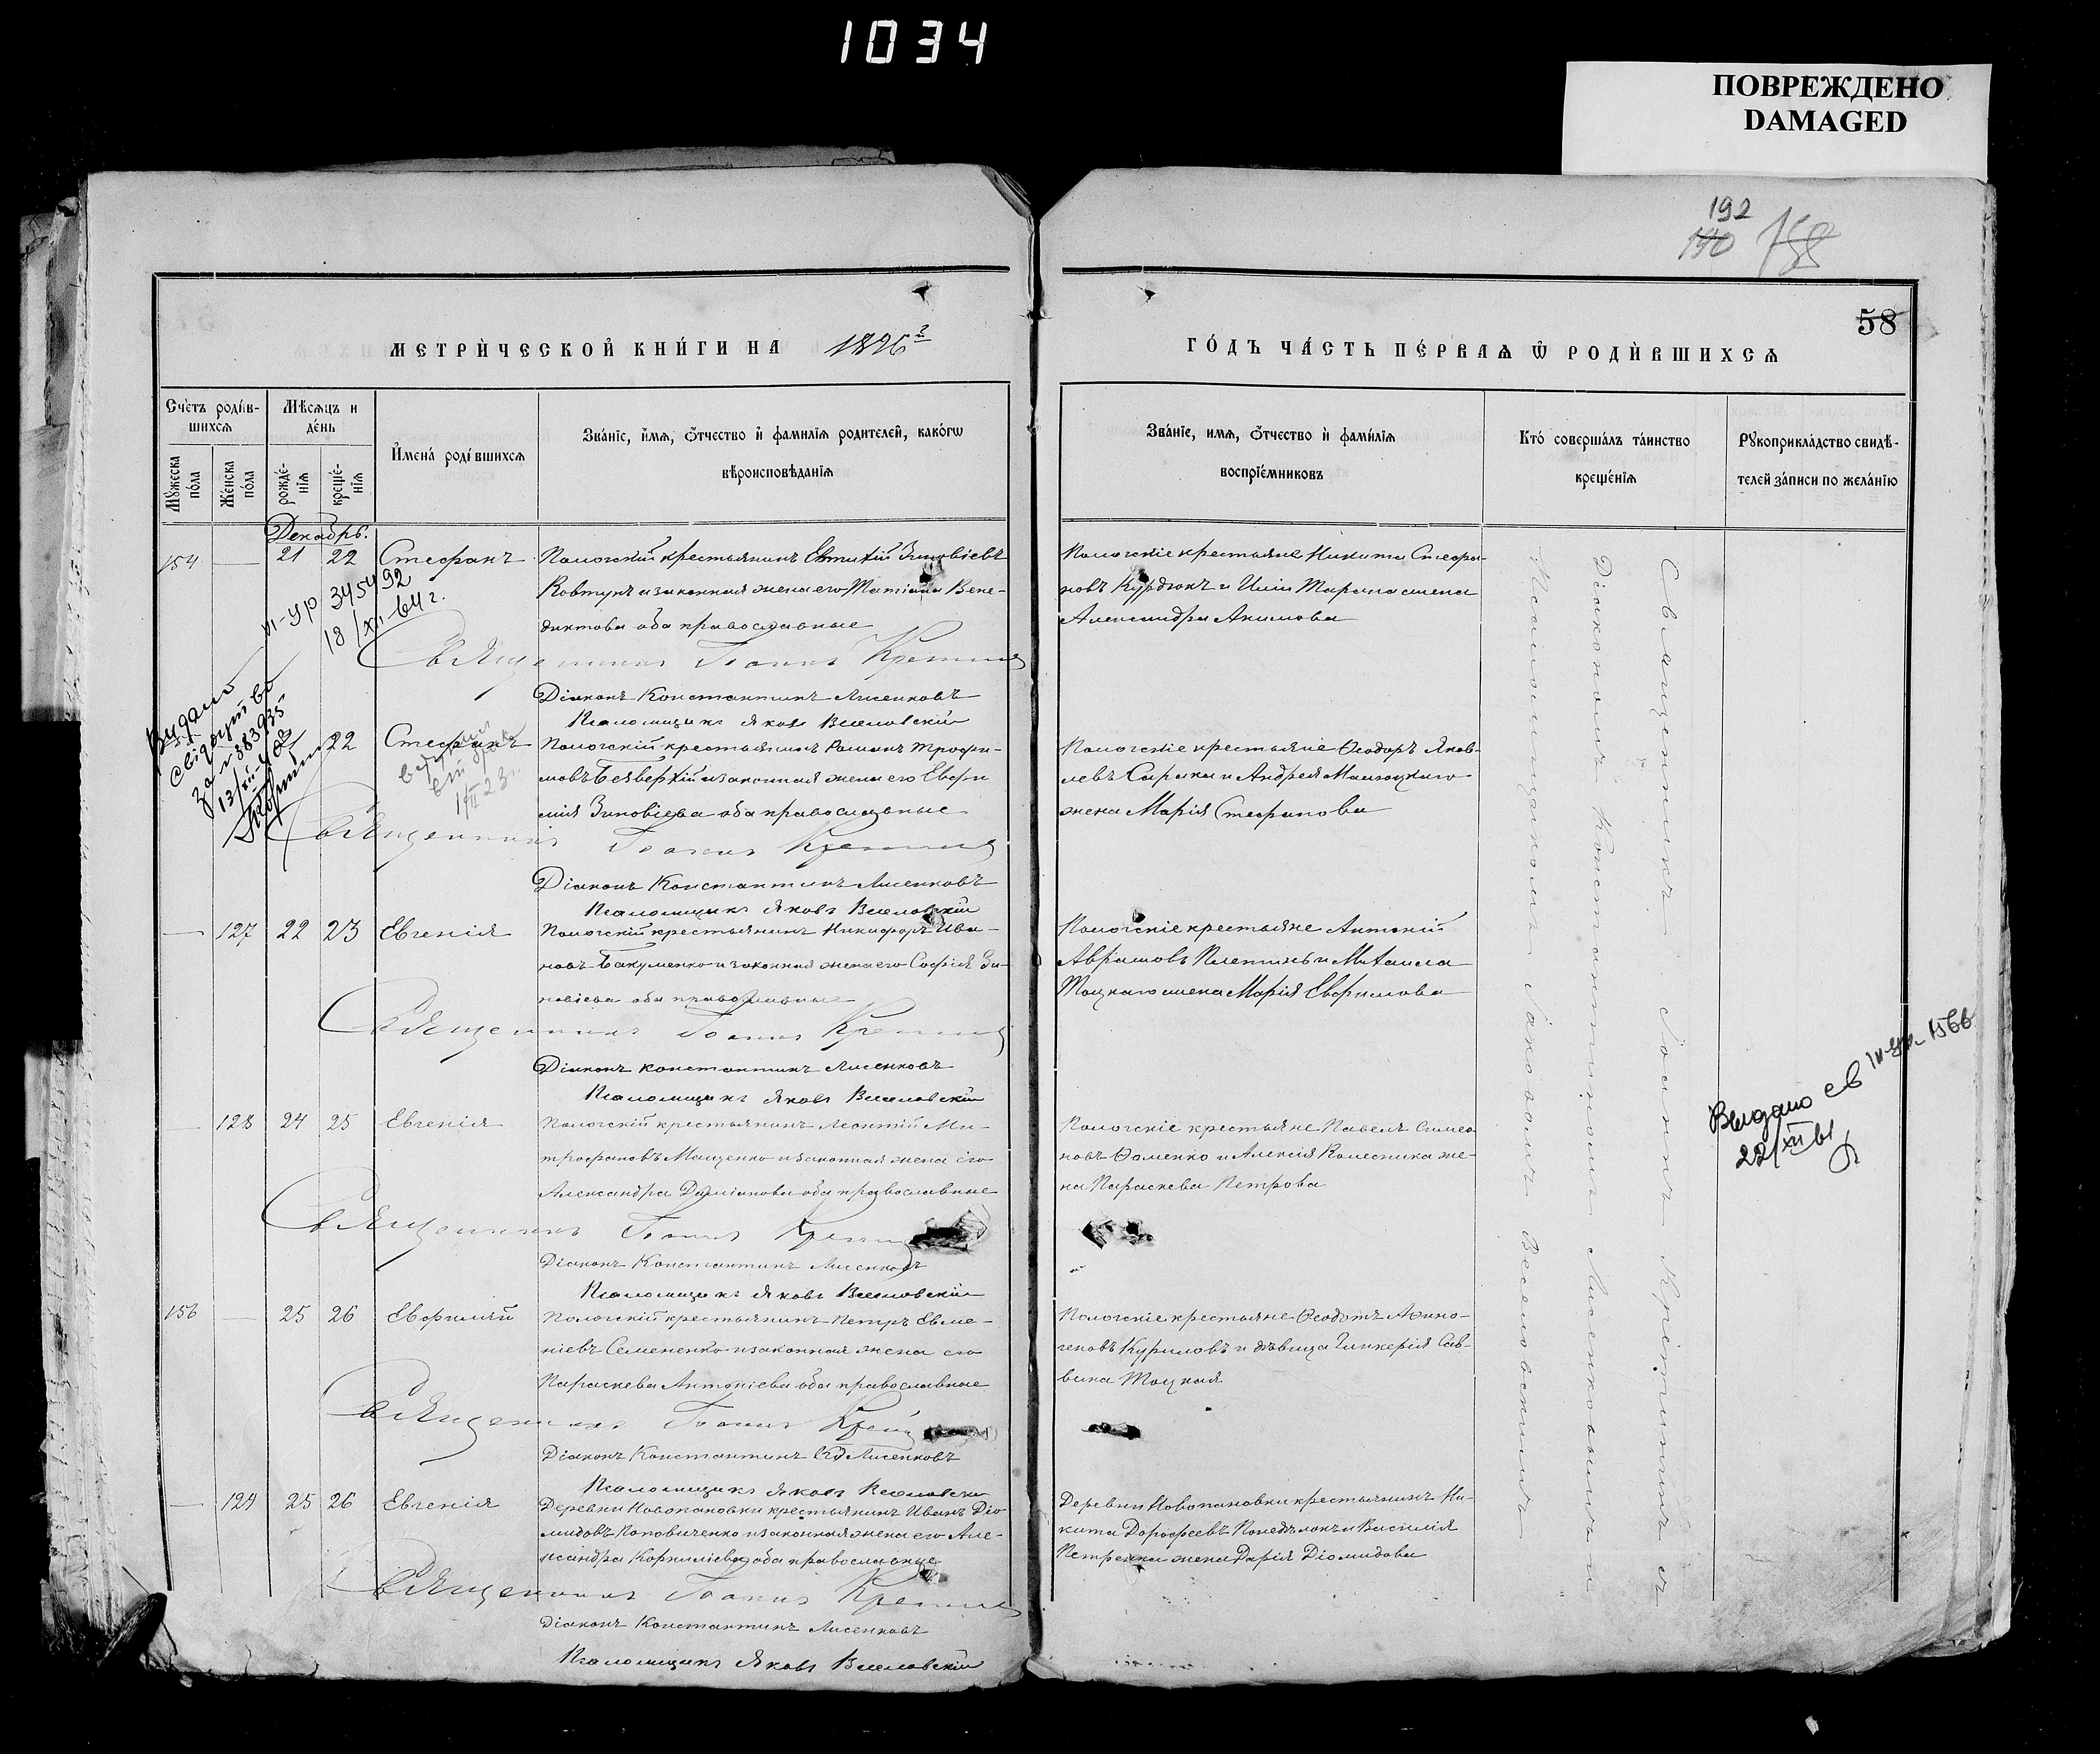 1034
ПОВРЕЖДЕНО
DAMAGED
192
190
58
МЕТРИ́ЧЕСКОЙ КНИ́ГИ НА 1896 г
ГО́ДЪ ЧА́СТЬ ПЕ́РВАѦ Ѿ РОДИ́ВШИХСѦ
Сче́тъ роди́в-
шихсѧ
Мѣ́сѧцъ и
де́нь
Мꙋ́жеска по́ла
Же́нска по́ла
рожде́-
нїѧ
креще́-
нїѧ
И҆мена́ роди́вшихсѧ
Зва́нїе, и҆́мѧ, ѻ҆́тчество и҆ фами́лїѧ родителей, како́гѡ
вѣроисповѣ́данїѧ
Зва́нїе, имѧ, ѻ҆́тчество и҆ фами́лїѧ
воспрїе́мниковъ
Кто́ соверша́лъ та́инство
креще́нїѧ
Рꙋкоприкла́дство свидѣ́-
телей за́писи по жела́нїю
Декабрь.
154 — 21 22 Стефанъ
Пологскій крестьянинъ Евтихій Зиновіевъ
Ковтунъ и законная жена его Татіана Вене-
диктова оба православные
Священникъ Іоаннъ
Діаконъ Константинъ Лисенковъ
Псаломщикъ Яковъ Веселовскій
Пологскіе крестьяне Никита Стефа-
новъ Курдюкъ и Иліи Тарана жена
Александра Акимова
345492
18/XI-64 г.
Видано
свідоцтво
за № 383935
22 Стефанъ
Пологскій крестьянинъ Романъ Трофи-
мовъ Безверхій и законная жена его Евфи
мія Зиновіева оба православные
Священникъ Іоаннъ
Діаконъ Константинъ Лисенковъ
Псаломщикъ Яковъ Веселовскій
Пологскіе крестьяне Ѳеодоръ Яков-
левъ Сирыкъ и Андрея Маслоцкаго
жена Марія Стефанова
— 127 22 23 Евгенія
Пологскій крестьянинъ Никифоръ Ива-
новъ Бакуменко и законная жена его Софія Зи-
новіева оба православные
Священникъ Іоаннъ
Діаконъ Константинъ Лисенковъ
Псаломщикъ Яковъ Веселовскій
Пологскіе крестьяне Антоній
Авраамовъ Плетинь и Михаила
Тоцкаго жена Марія Евфимова
— 128 24 25 Евгенія
Пологскій крестьянинъ Леонтій Ми-
трофановъ Мащенко и законная жена его
Александра Даміанова оба православные
Священникъ Іоаннъ
Діаконъ Константинъ Лисенковъ
Псаломщикъ Яковъ Веселовскій
Пологскіе крестьяне Павелъ Симео
новъ Ѳоменко и Алексія Колесника же-
на Параскева Петрова
Выдано св
22/XII 61
156 — 25 26 Евфимій
Пологскій крестьянинъ Петръ Евме-
ніевъ Семененко и законная жена его
Параскева Антоніева оба православные
Священникъ Іоаннъ
Діаконъ Константинъ Лисенковъ
Псаломщикъ Яковъ Веселовскій
Пологскіе крестьяне Ѳеодотъ Аѳино-
геновъ Куриловъ и дѣвица Гликерія Сав-
вина Тоцкая
— 129 25 26 Евгенія
Деревни Новопановки крестьянинъ Иванъ Діо
мидовъ Поповиченко и законная жена его Але-
ксандра Корниліева оба православные
Священникъ Іоаннъ
Діаконъ Константинъ Лисенковъ
Псаломщикъ Яковъ Веселовскій
Деревни Новопановки крестьянинъ Ни-
кита Дорофеевъ Понедѣлокъ и Василія
Петренка жена Дарія Діомидова
Священникъ Іоаннъ съ
Діакономъ Константиномъ Лисенковымъ и
Псаломщикомъ Іаковомъ Веселовскимъ